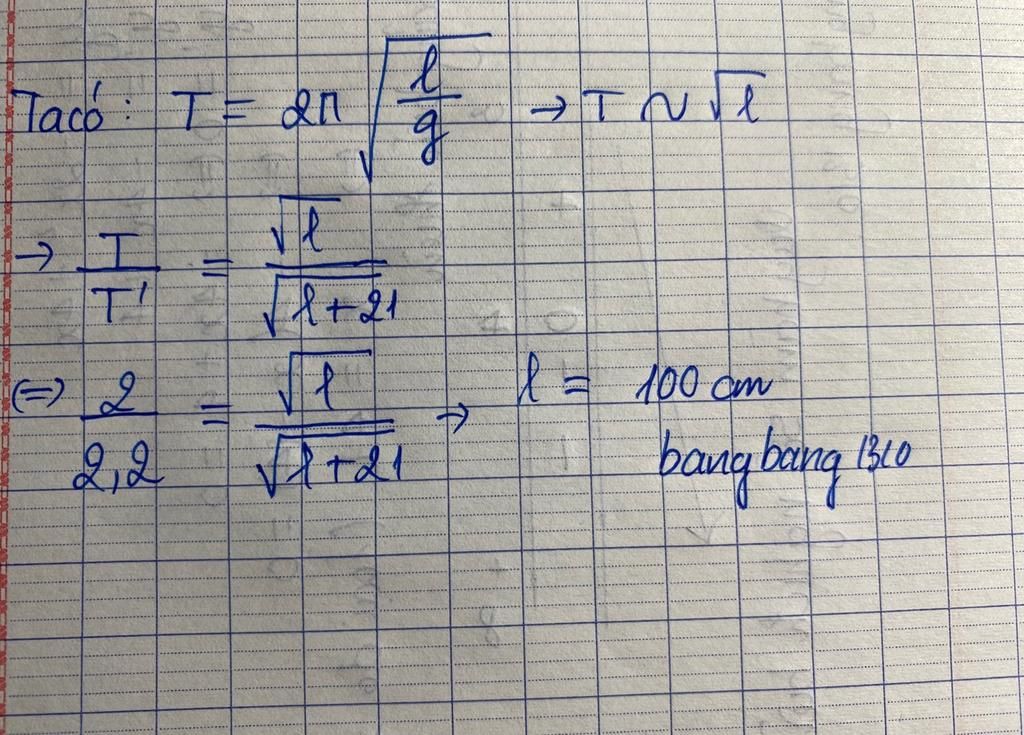 Ta có: T = 2π √(l/g) → T ~ √l
→ T/T' = √l/√(l+21)
(=) 2/2,2 = √l/√(l+21) → l = 100 cm
bangbang1310